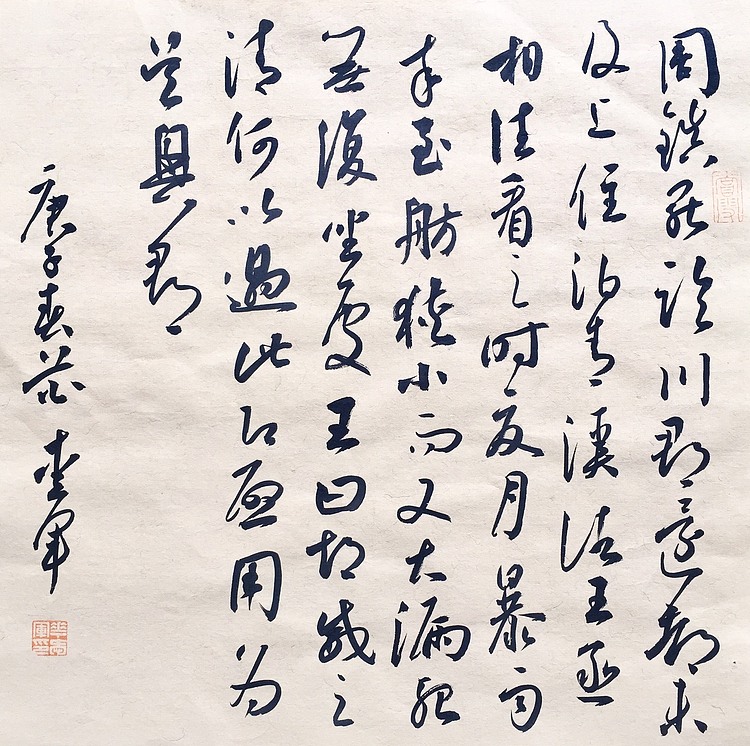 周鎮罷臨川郡還都未
及上住泊青溪渚王丞
相往看之時夏月暴雨
卒至舫狹小而又大漏殆
無復坐處王曰胡威之
清何以過此即啟用為
吳興郡
庚子春 軍